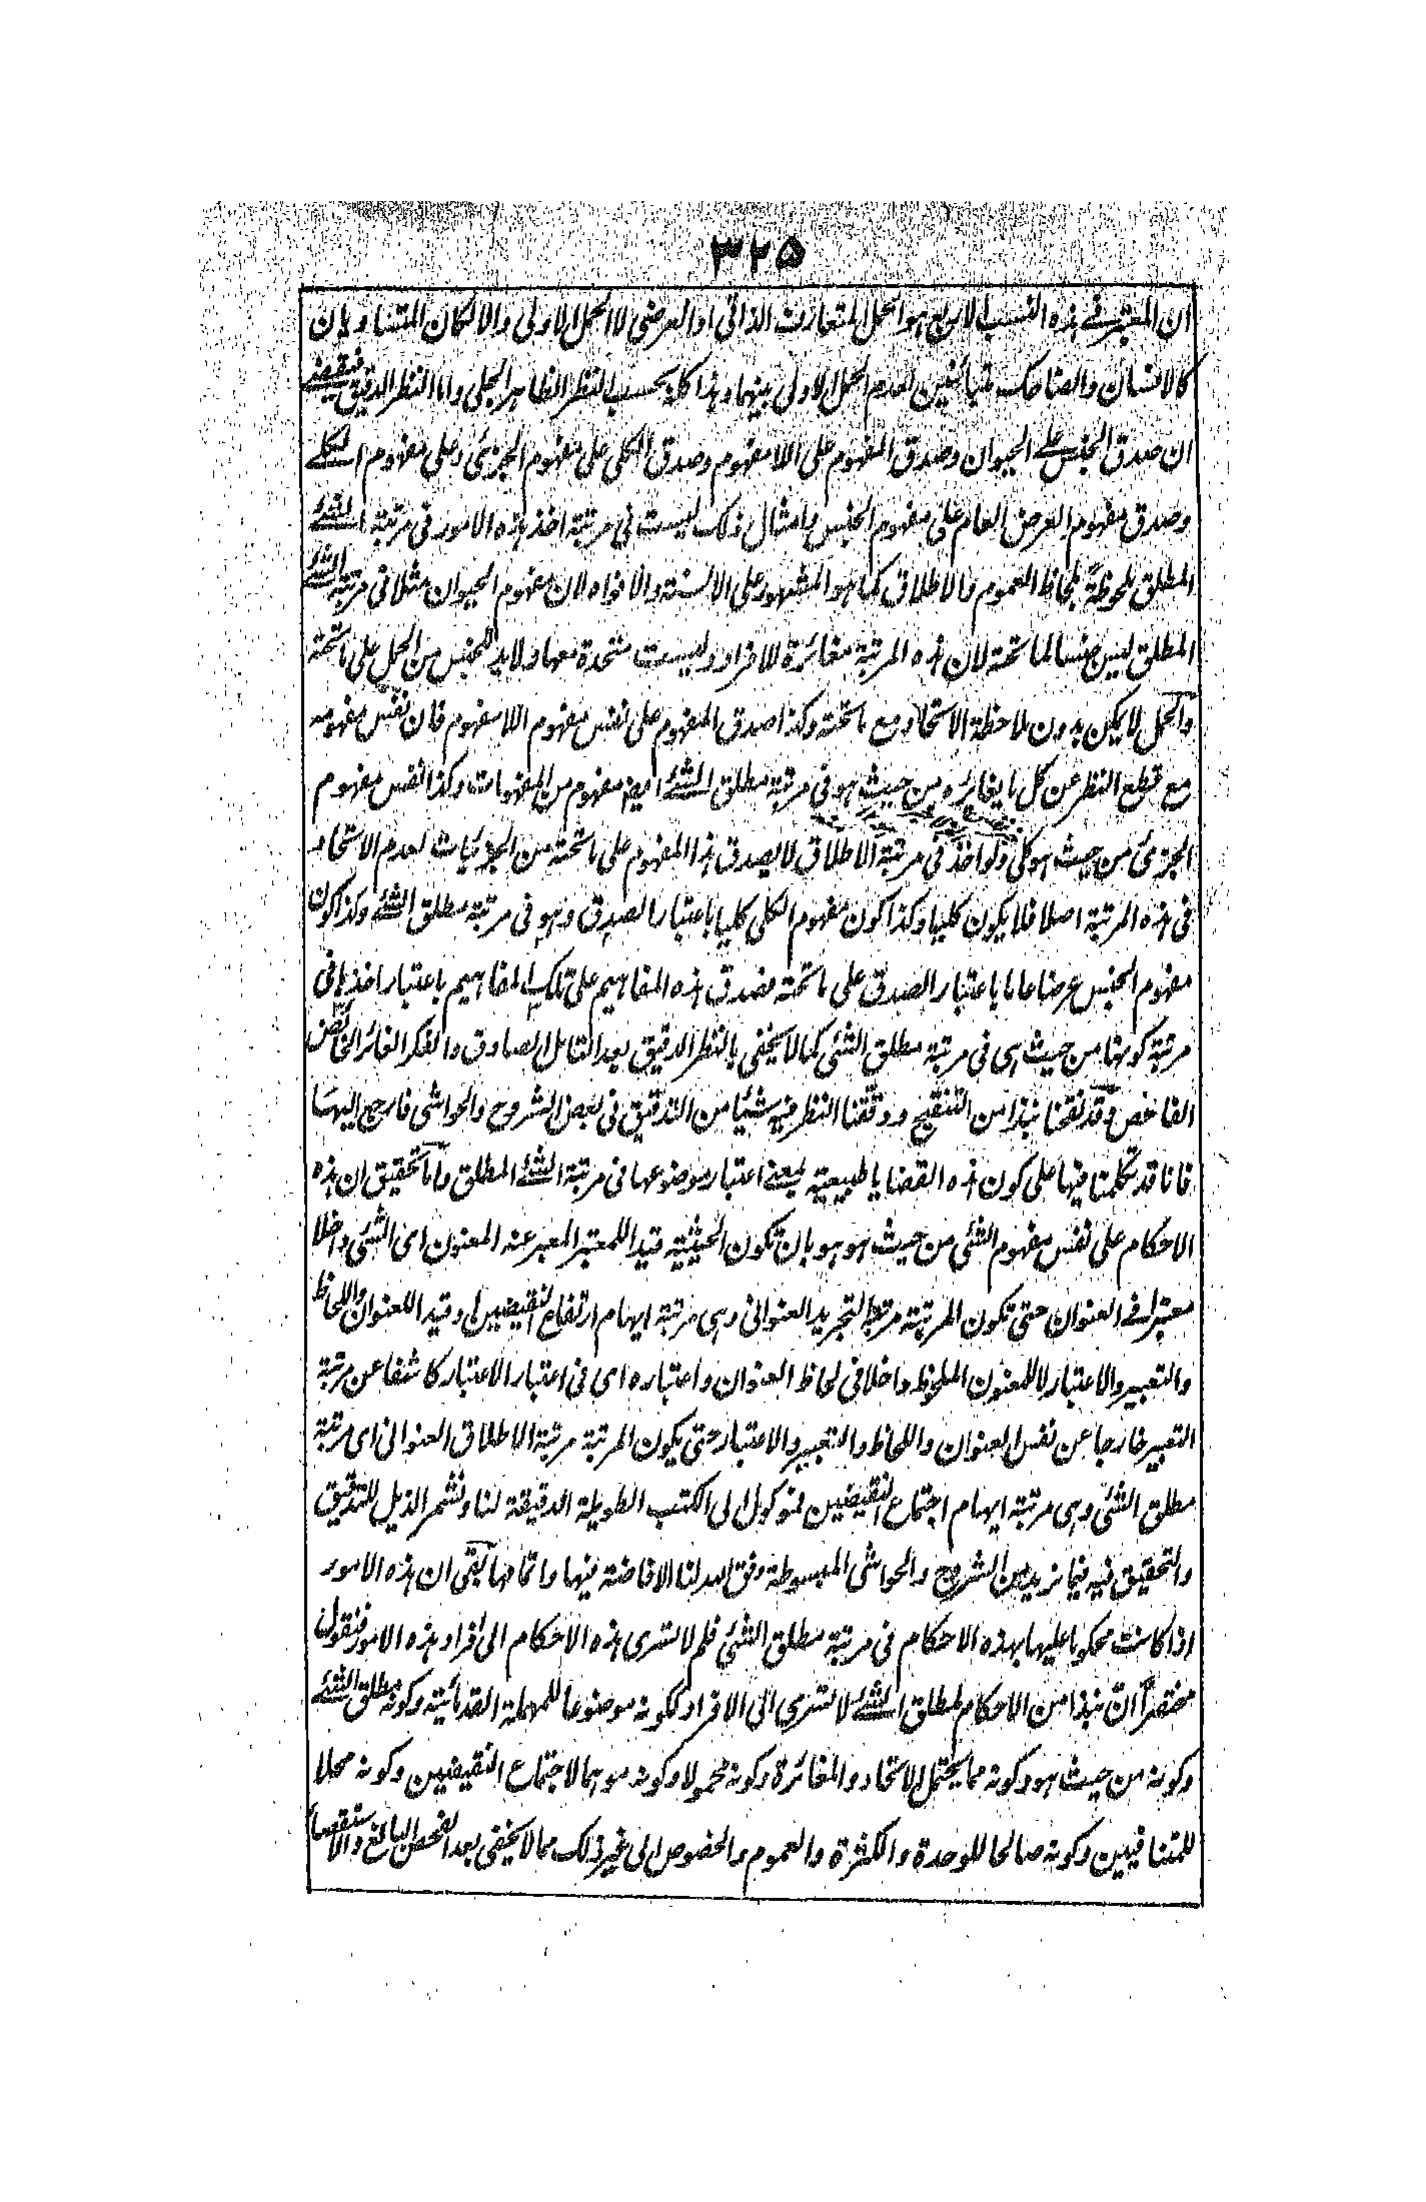 ۳۲۵
ان المعتبر فے هذه النسب الاربع هو الحمل المتعارف الذاتي او العرضي لا الحمل الاولي والا لكان المتساويان
كالانسان والضاحك متبائنين لعدم الحمل الاولي بينهما وهذا كله بحسب النظر الظاهر الجلي واما النظر الدقيق فيقتضے
ان صدق الجنس علے الحيوان وصدق المفهوم على اللا مفهوم وصدق الكلي على مفهوم الجزئي وعلى مفهوم الكلے
وصدق مفهوم العرض العام على مفهوم الجنس وامثال ذلك ليست في مرتبة اخذ هذه الامور في مرتبة الشئے
المطلق ملحوظة بلحاظ العموم والاطلاق كما هو المشهور على الالسنة والافواه لان مفهوم الحيوان مثلا في مرتبة الشئے
المطلق ليس جنسا لما تحته لان هذه المرتبة مغائرة للافراد وليست متحدة معها ولا بد للجنس من الحمل على ما تحته
والحمل لا يمكن بدون ملاحظة الاتحاد مع ما تحته وكذا صدق المفهوم على نفس مفهوم اللا مفهوم فان نفس مفهومه
مع قطع النظر عن كل ما يغائره من حيث هو في مرتبة مطلق الشئے ايضا مفهوم من المفهومات وكذا نفس مفهوم
الجزئي من حيث هو كلي ولو اخذ في مرتبة الاطلاق لا يصدق هذا المفهوم على ما تحته من الجزئيات لعدم الاتحاد
في هذه المرتبة اصلا فلا يكون كليا وكذا كون مفهوم الكلي كليا باعتبار الصدق وهو في مرتبة مطلق الشئے وكذا كون
مفهوم الجنس عرضا عاما باعتبار الصدق على ما تحته فصدق هذه المفاهيم على تلك المفاهيم باعتبار اخذها في
مرتبة كونها من حيث هي في مرتبة مطلق الشئي كما لا يخفى بالنظر الدقيق بعد التامل الصادق والفكر الغائر الخائض
الفاحص وقد نقحنا نبذا من التنقيح ودققنا النظر فيه شيئا من التدقيق في بعض الشروح والحواشي فارجع اليها
فانا قد تكلمنا فيها على كون هذه القضايا طبيعية بمعنے اعتبار موضوعها في مرتبة الشئے المطلق واما تحقيق ان هذه
الاحكام على نفس مفهوم الشئي من حيث هو هو بان تكون الحيثية قيدا للمعتبر المعبر عنه المعنون اي الشئي داخلا
معتبرا فے العنوان حتى تكون المرتبة مرتبة التجريد العنواني وهي مرتبة ايهام ارتفاع النقيضين او قيدا للعنوان واللحاظ
والتعبير والاعتبار لا للمعنون الملحوظ داخلا في لحاظ العنوان واعتباره اي في اعتبار الاعتبار كاشفا عن مرتبة
التعبير خارجا عن نفس العنوان واللحاظ والتعبير والاعتبار حتى يكون المرتبة مرتبة الاطلاق العنواني اي مرتبة
مطلق الشئي وهي مرتبة ايهام اجتماع النقيضين فموكول الى الكتب الطويلة الدقيقة لنا ونشمر الذيل للتدقيق
والتحقيق فيه فيما نريد من الشروح والحواشي المبسوطة وفق الله لنا الافاضة فيها واتمامها بقى ان هذه الامور
اذا كانت محكوما عليها بهذه الاحكام في مرتبة مطلق الشئي فلم لا تسري هذه الاحكام الى افراد هذه الامور فنقول
مختصرا انّ نبذا من الاحكام لمطلق الشئے لا تسري الى الافراد ككونه موضوعا للمهملة القدمائية وكونه مطلق الشئے
وكونه من حيث هو وكونه مما يحتمل الاتحاد والمغائرة وكونه محمولا وكونه موهما لاجتماع النقيضين وكونه محلا
للمتنافيين وكونه صالحا للوحدة والكثرة والعموم والخصوص الى غير ذلك مما لا يخفى بعد الفحص البالغ والاستقصاء